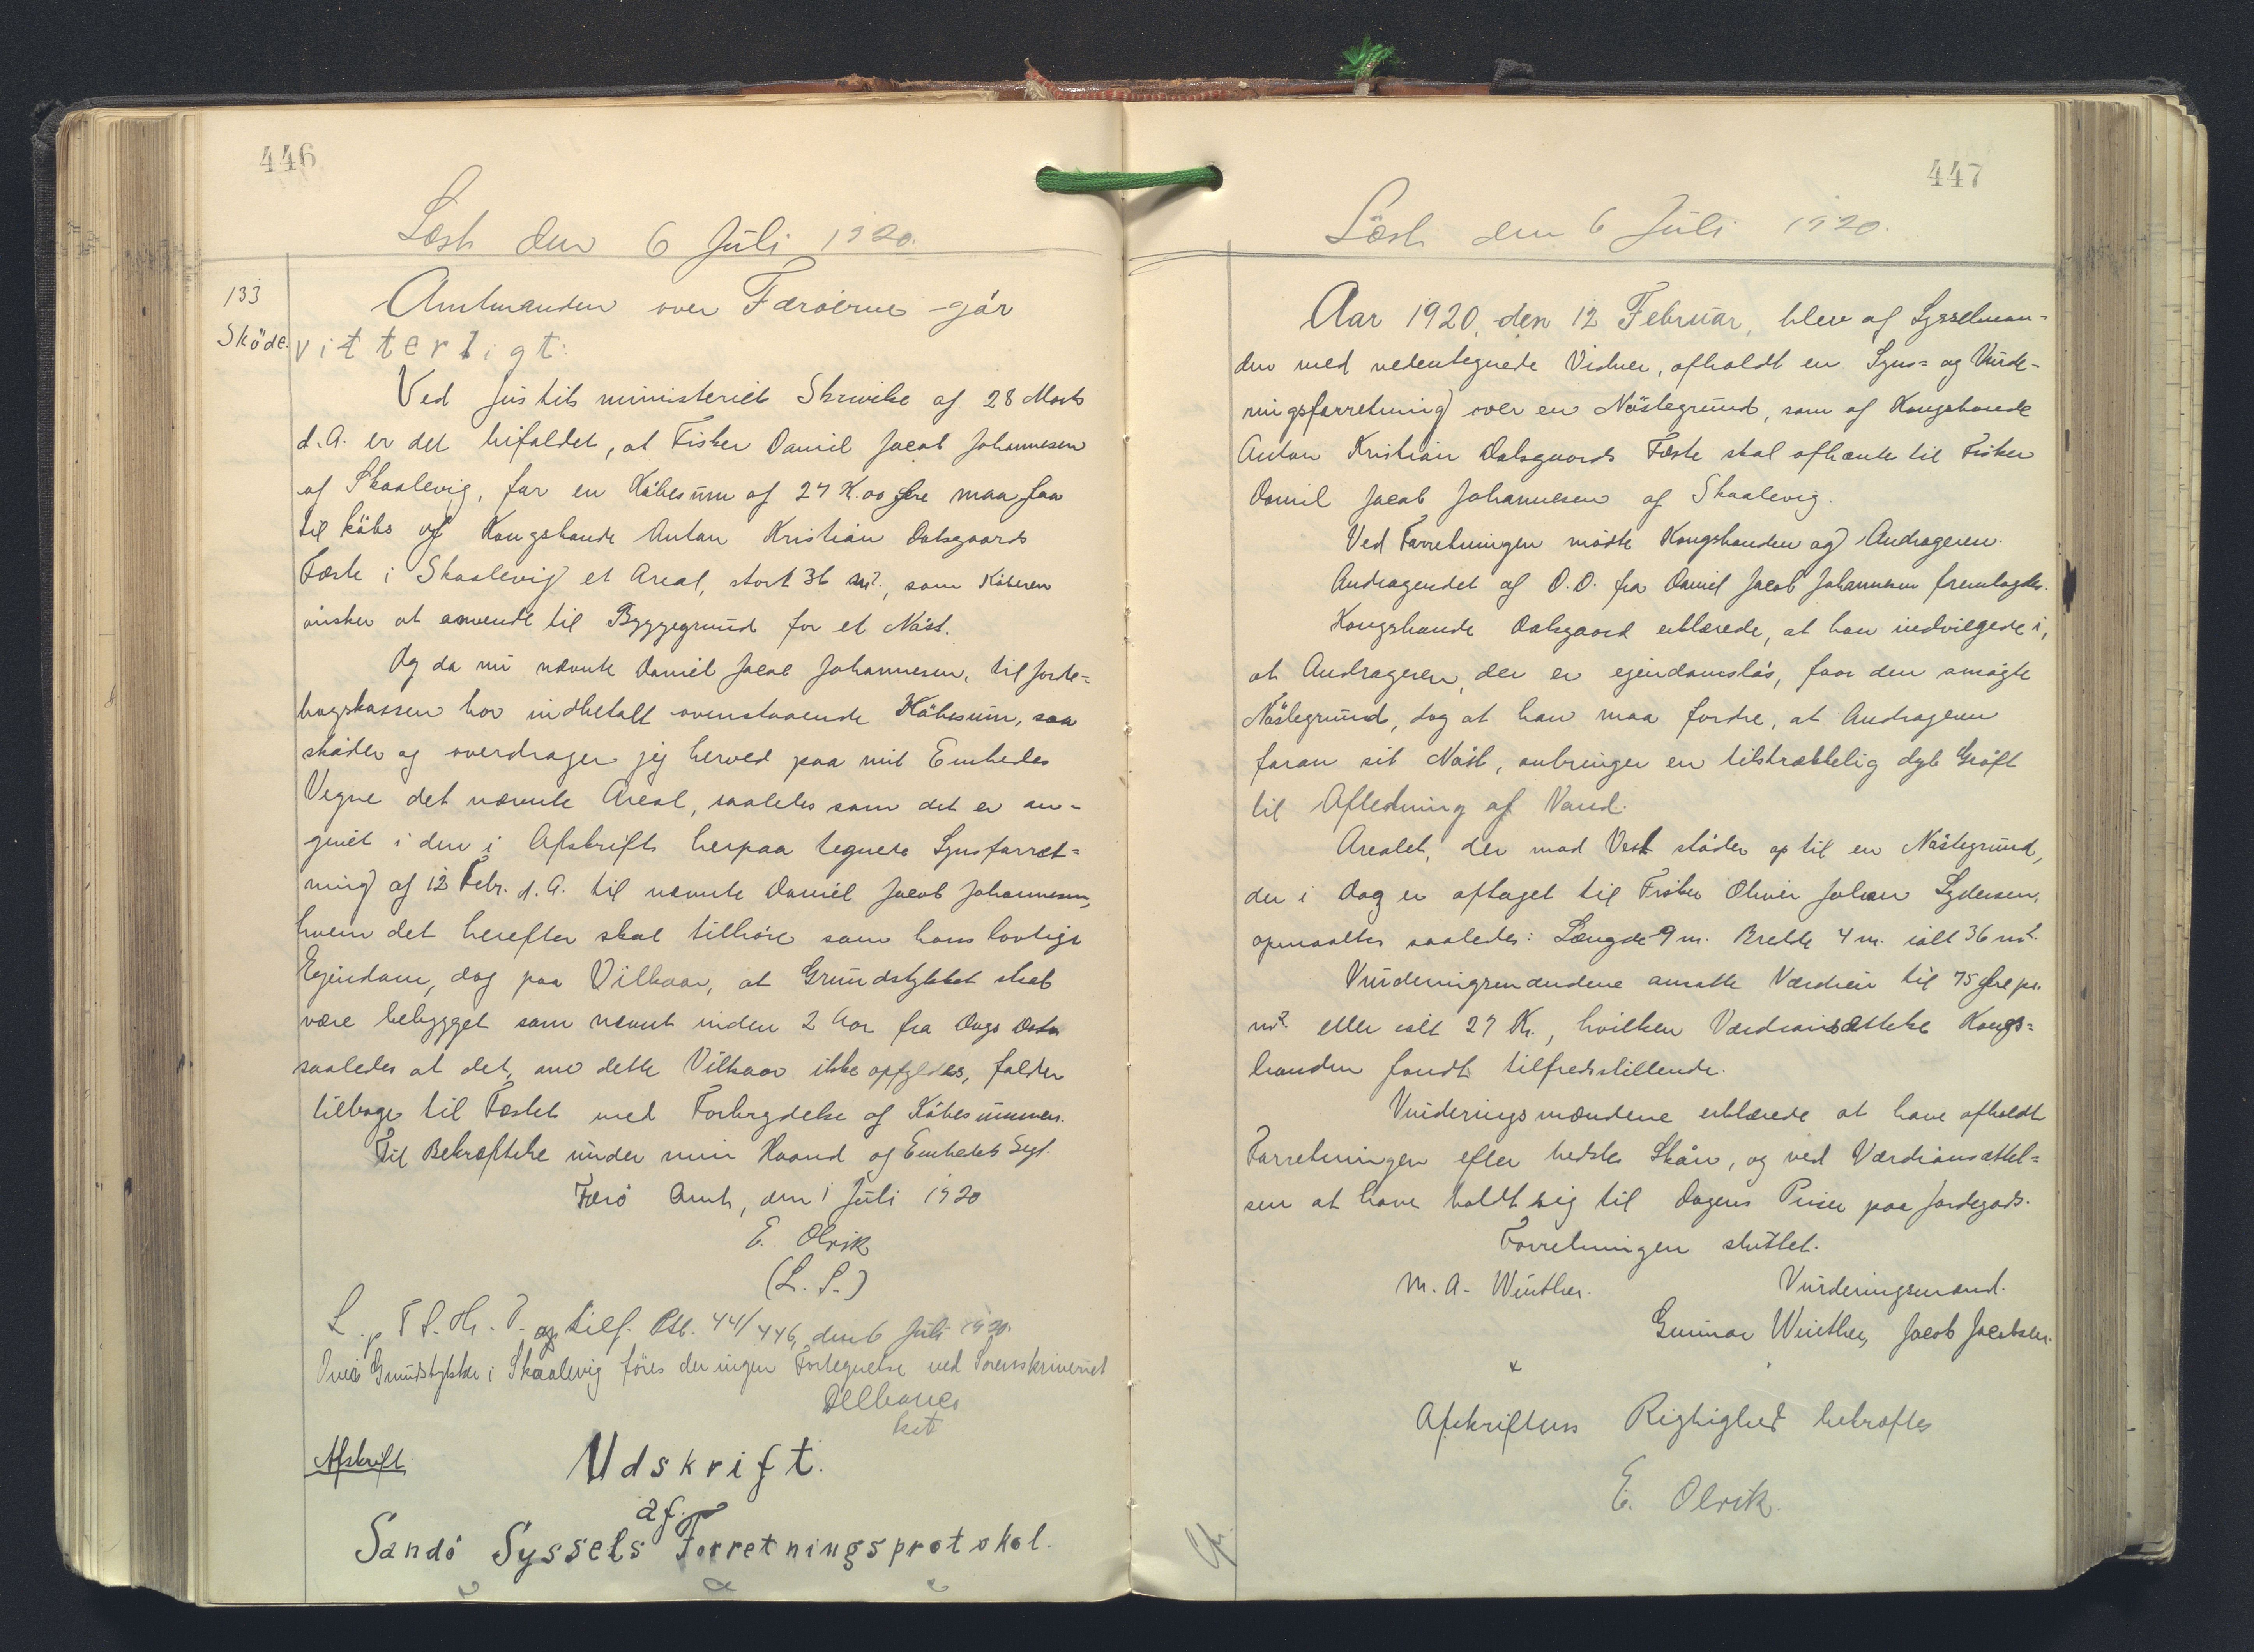 446
Læst den 6 Juli 1920.
133
Sköde.
Amtmanden over Færöerne gör
vitterligt:
Ved Justitsministeriets Skrivelse af 28 Marts
d.A. er det bifaldet, at Fisker Daniel Jacob Johannesen
af Skaalevig, for en Köbesum af 27 K. 00 Øre maa faa
til köbs af Kongsbonde Anton Kristian Dalsgaards
Fæste i Skaalevig et Areal, stort 36 m², som Köberen
önsker at anvende til Byggegrund for et Nöst.
Og da nu nævnte Daniel Jacob Johannesen, til Jorde=
bogskassen har indbetalt ovenstaaende Köbesum, saa
sköder og overdrager jeg herved paa mit Embedes
Vegne det nævnte Areal, saaledes som det er an-
givet i den i Afskrift herpaa tegnede Synsforret=
ning af 12 Febr. d.A. til nævnte Daniel Jacob Johannesen,
hvem det herefter skal tilhöre som hans lovlige
Ejendom, dog paa Vilkaar, at Grundstykket skal
være bebygget som nævnt inden 2 Aar fra Dags Dato
saaledes at det, om dette Vilkaar ikke opfyldes, falder
tilbage til Fæstet med Fortrydelse af Köbesummen.
Til Bekræftelse under min Haand og Embedets Segl.
Færö Amt, den 1 Juli 1920
E. Olrik
(L. S.)
L. p. F S. Hr. T. og tilf. Ptb. 44/446, den 6 Juli 1920.
Over Grundstykker i Skaalevig föres der ingen Fortegnelse ved Sorenskriveriet
Delbanco
kst
Afskrift.
Udskrift.
af.
Sandö Syssels Forretningsprotokol.
447
Læst den 6 Juli 1920.
Aar 1920, den 12 Februar, blev af Sysselman-
den med nedentegnede Vidner, afholdt en Syns= og Vurde-
ringsforretning over en Nöstegrund, som af Kongsbonde
Anton Kristian Dalsgaards Fæste skal afhænte til Fisker
Daniel Jacob Johannesen af Skaalevig.
Ved Forretningen mödte Kongsbonden og Andrageren.
Andragendet af D.D. fra Daniel Jacob Johannesen fremlagdes.
Kongsbonde Dalsgaard erklærede, at han indvilgede i,
at Andrageren, der er ejendomslös, faar den ansögte
Nöstegrund, dog at han maa fordre, at Andrageren
foran sit Nöst, anbringer en tilstrækkelig dyb Gröft
til Afledning af Vand.
Arealet, der mod Vest stöder op til en Nöstegrund,
der i Dag er aftaget til Fisker Oliver Johan Lydersen,
opmaaltes saaledes: Længde 9 m. Bredde 4 m. ialt 36 m².
Vurderingsmændene ansatte Værdien til 75 Øre pr.
m² eller ialt 27 Kr., hvilken Værdiansættelse Kongs=
bonden fandt tilfredsstillende.
Vurderingsmændene erklærede at have afholdt
Forretningen efter bedste Skön, og ved Værdiansættel=
sen at have holdt sig til Dagens Priser paa Jordegods.
Forretningen sluttet.
M. A. Winther. Vurderingsmænd.
Gunnar Winther, Jacob Jacobsen.
Afskriftens Rigtighed bekræftes
E. Olrik.